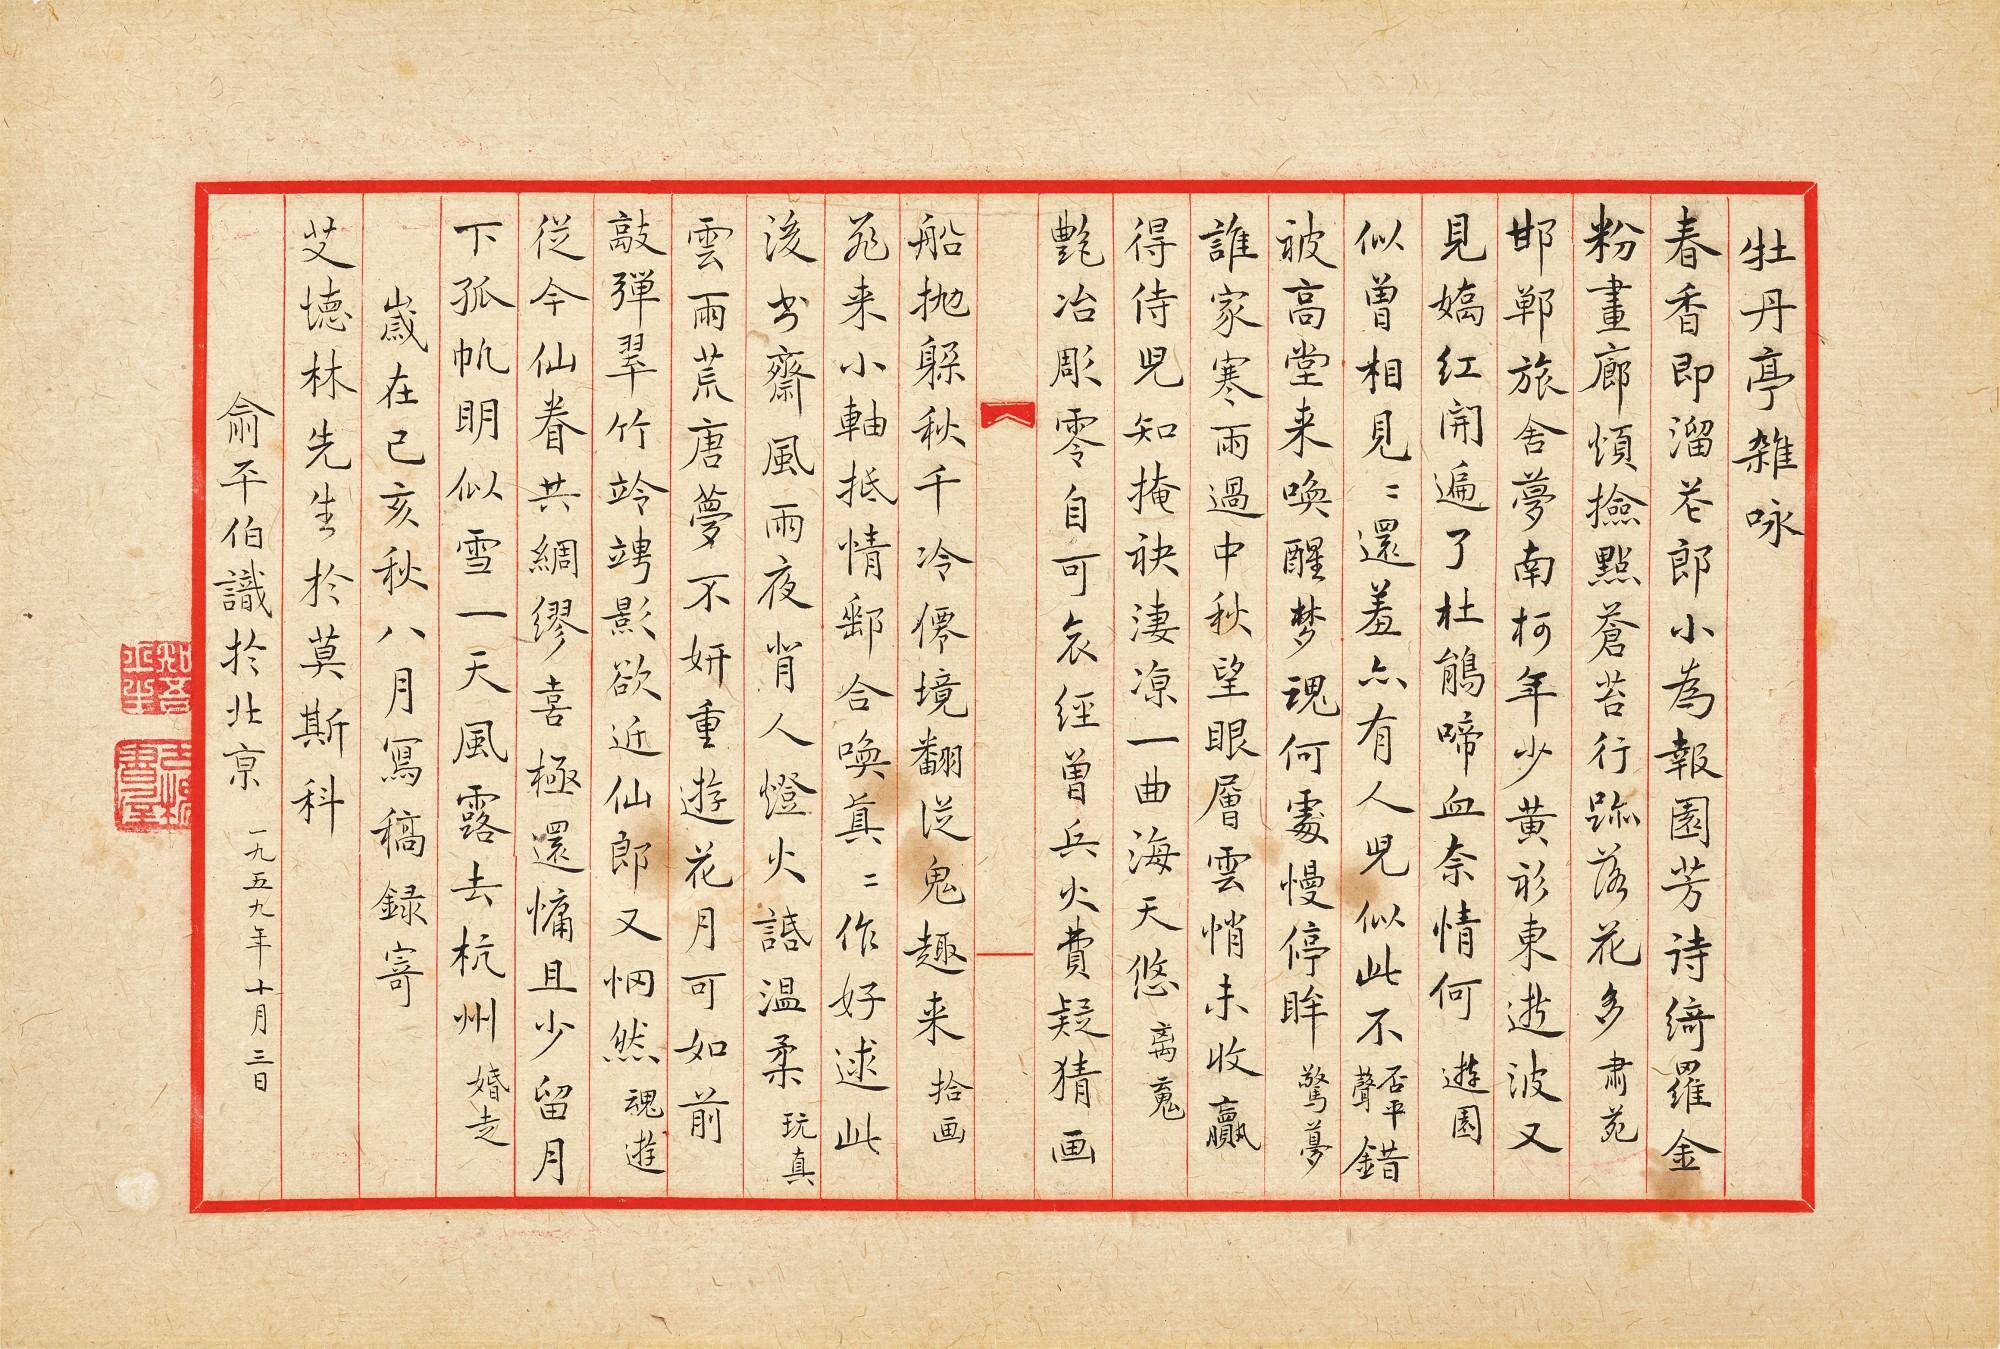 牡丹亭雜咏
春香即溜花郎小為報園芳詩綺羅金
粉畫廊煩撿點蒼苔行跡落花多肅苑
邯鄲旅舍夢南柯年少黃衫東逝波又
見嫣紅開遍了杜鵑啼血奈情何遊園
似曾相見〻還羞亦有人兒似此不否平聲錯
被高堂来喚醒梦魂何處慢停眸驚夢
誰家寒雨過中秋望眼層雲悄未收贏
得侍兒知掩袂淒涼一曲海天悠离魂
艷冶彫零自可哀經曾兵火費疑猜画
船抛躲秋千冷儜境翻從鬼趣来拾画
飛来小軸抵情郵合喚真〻作好逑此
後书齋風雨夜背人燈火話温柔玩真
雲雨荒唐夢不妍重遊花月可如前
敲彈翠竹竛竮影欲近仙郎又惘然魂遊
從今仙眷共綢繆喜極還慵且少留月
下孤帆明似雪一天風露去杭州婚走
歲在己亥秋八月寫稿録寄
艾德林先生於莫斯科
俞平伯識於北京一九五九年十月三日